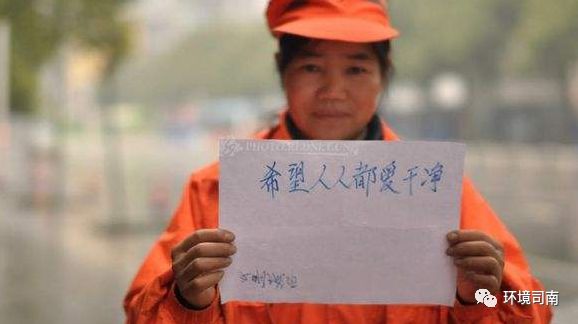 PHOTO.REDNET.CN
希望人人都爱干净
环境司南